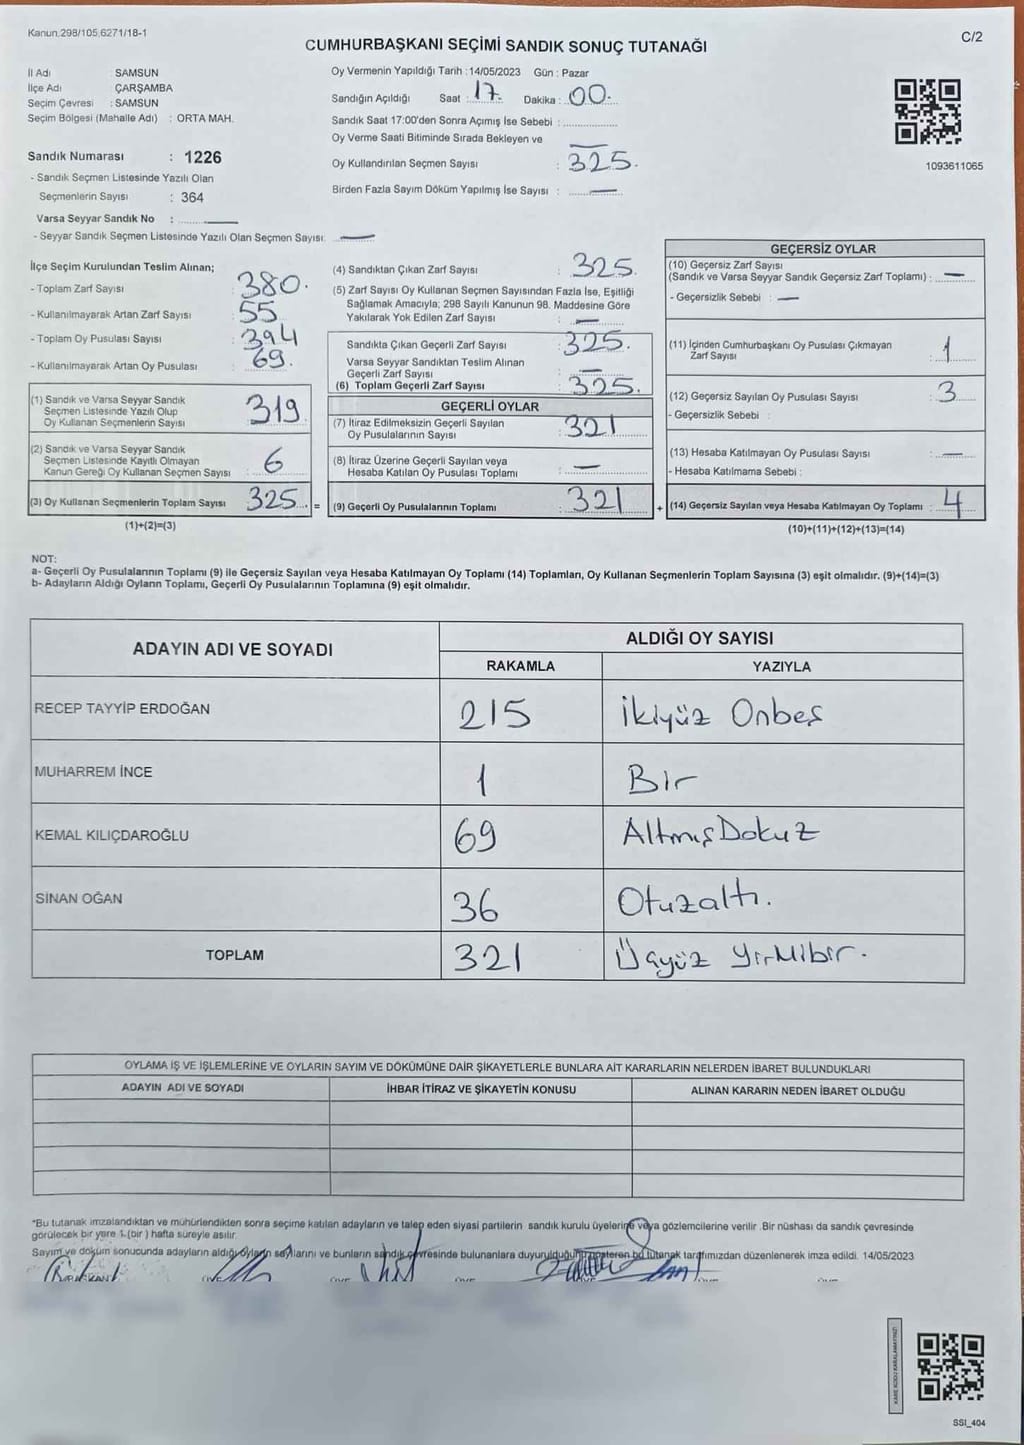 Kanun.298/105,6271/18-1
C/2
CUMHURBAŞKANI SEÇİMİ SANDIK SONUÇ TUTANAĞI
İl Adı : SAMSUN
İlçe Adı : ÇARŞAMBA
Seçim Çevresi : SAMSUN
Seçim Bölgesi (Mahalle Adı) : ORTA MAH.
Sandık Numarası : 1226
- Sandık Seçmen Listesinde Yazılı Olan
Seçmenlerin Sayısı : 364
Varsa Seyyar Sandık No : —
- Seyyar Sandık Seçmen Listesinde Yazılı Olan Seçmen Sayısı: —
Oy Vermenin Yapıldığı Tarih :14/05/2023 Gün : Pazar
Sandığın Açıldığı Saat : 17. Dakika : 00.
Sandık Saat 17:00'den Sonra Açımış İse Sebebi :
Oy Verme Saati Bitiminde Sırada Bekleyen ve
Oy Kullandırılan Seçmen Sayısı : — 325.
Birden Fazla Sayım Döküm Yapılmış İse Sayısı : —
1093611065
İlçe Seçim Kurulundan Teslim Alınan;
- Toplam Zarf Sayısı : 380.
- Kullanılmayarak Artan Zarf Sayısı : 55
- Toplam Oy Pusulası Sayısı : 394
- Kullanılmayarak Artan Oy Pusulası : 69.
(1) Sandık ve Varsa Seyyar Sandık
Seçmen Listesinde Yazılı Olup
Oy Kullanan Seçmenlerin Sayısı : 319
(2) Sandık ve Varsa Seyyar Sandık
Seçmen Listesinde Kayıtlı Olmayan
Kanun Gereği Oy Kullanan Seçmen Sayısı : 6
(3) Oy Kullanan Seçmenlerin Toplam Sayısı : 325. =
(1)+(2)=(3)
(4) Sandıktan Çıkan Zarf Sayısı : 325.
(5) Zarf Sayısı Oy Kullanan Seçmen Sayısından Fazla İse, Eşitliği
Sağlamak Amacıyla; 298 Sayılı Kanunun 98. Maddesine Göre
Yakılarak Yok Edilen Zarf Sayısı : —
Sandıkta Çıkan Geçerli Zarf Sayısı : 325.
Varsa Seyyar Sandıktan Teslim Alınan
Geçerli Zarf Sayısı : —
(6) Toplam Geçerli Zarf Sayısı : 325.
GEÇERLİ OYLAR
(7) İtiraz Edilmeksizin Geçerli Sayılan
Oy Pusulalarının Sayısı : 321
(8) İtiraz Üzerine Geçerli Sayılan veya
Hesaba Katılan Oy Pusulası Toplamı : —
(9) Geçerli Oy Pusulalarının Toplamı : 321 +
GEÇERSİZ OYLAR
(10) Geçersiz Zarf Sayısı
(Sandık ve Varsa Seyyar Sandık Geçersiz Zarf Toplamı) : —
- Geçersizlik Sebebi : —
(11) İçinden Cumhurbaşkanı Oy Pusulası Çıkmayan
Zarf Sayısı : 1
(12) Geçersiz Sayılan Oy Pusulası Sayısı : 3
- Geçersizlik Sebebi :
(13) Hesaba Katılmayan Oy Pusulası Sayısı : —
- Hesaba Katılmama Sebebi :
(14) Geçersiz Sayılan veya Hesaba Katılmayan Oy Toplamı : 4
(10)+(11)+(12)+(13)=(14)
NOT:
a- Geçerli Oy Pusulalarının Toplamı (9) ile Geçersiz Sayılan veya Hesaba Katılmayan Oy Toplamı (14) Toplamları, Oy Kullanan Seçmenlerin Toplam Sayısına (3) eşit olmalıdır. (9)+(14)=(3)
b- Adayların Aldığı Oyların Toplamı, Geçerli Oy Pusulalarının Toplamına (9) eşit olmalıdır.
ADAYIN ADI VE SOYADI
ALDIĞI OY SAYISI
RAKAMLA YAZIYLA
RECEP TAYYİP ERDOĞAN 215 İkiyüz Onbeş
MUHARREM İNCE 1 Bir
KEMAL KILIÇDAROĞLU 69 AltmışDokuz
SİNAN OĞAN 36 Otuzaltı.
TOPLAM 321 Üçyüz YirMibir.
OYLAMA İŞ VE İŞLEMLERİNE VE OYLARIN SAYIM VE DÖKÜMÜNE DAİR ŞİKAYETLERLE BUNLARA AİT KARARLARIN NELERDEN İBARET BULUNDUKLARI
ADAYIN ADI VE SOYADI İHBAR İTİRAZ VE ŞİKAYETİN KONUSU ALINAN KARARIN NEDEN İBARET OLDUĞU
*Bu tutanak imzalandıktan ve mühürlendikten sonra seçime katılan adayların ve talep eden siyasi partilerin sandık kurulu üyelerine veya gözlemcilerine verilir .Bir nüshası da sandık çevresinde
görülecek bir yere 1.(bir) hafta süreyle asılır.
Sayım ve döküm sonucunda adayların aldığı oyların sayılarını ve bunların sandık çevresinde bulunanlara duyurulduğunu gösteren bu tutanak tarafımızdan düzenlenerek imza edildi. 14/05/2023
KARE KODU KARALAMAYINIZ!
SSI_404